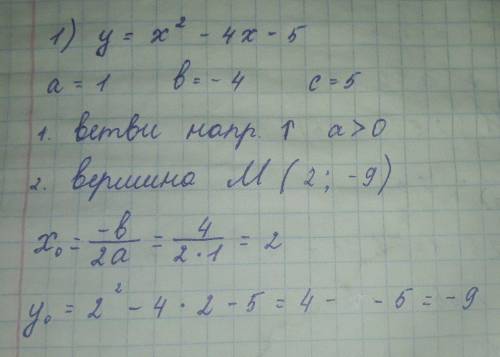 1) y = x² - 4x - 5
a = 1 b = -4 c = 5
1. ветви напр. ↑ a > 0
2. вершина M (2; -9)
x₀ = -b/2a = 4/2·1 = 2
y₀ = 2² - 4 · 2 - 5 = 4 - - 5 = -9